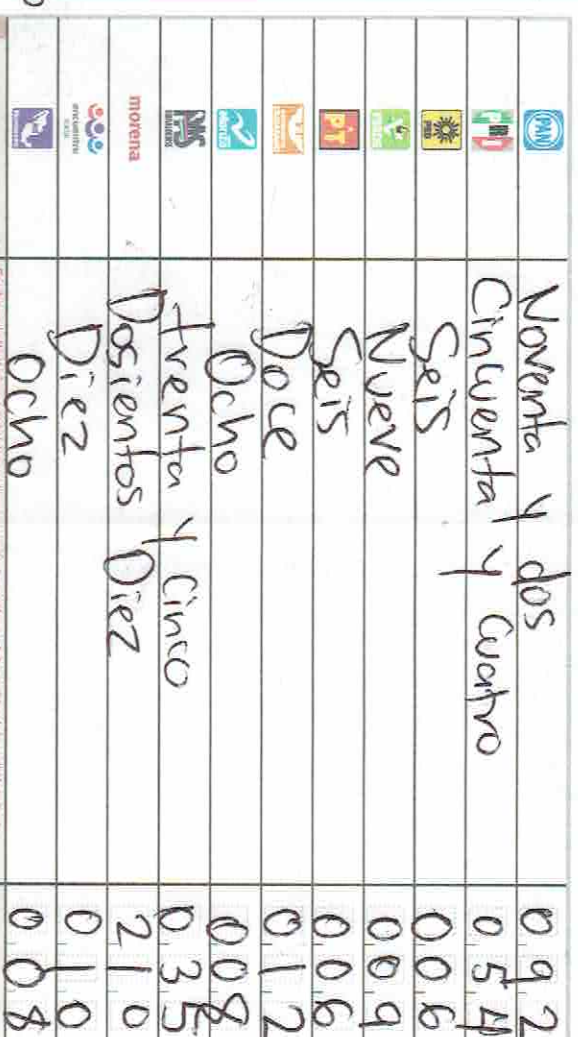 PAN Noventa y dos 092
PRI Cincuenta y Cuatro 054
PRD Seis 006
VERDE Nueve 009
PT Seis 006
Doce 012
alianza Ocho 008
treinta y Cinco 035
morena Dosientos Diez 210
encuentro Diez 010
Ocho 008